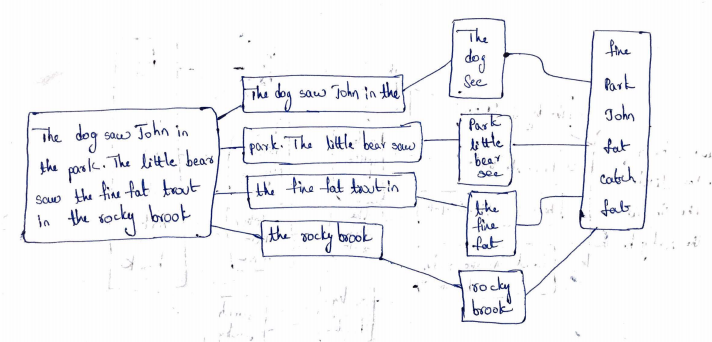 The dog saw John in
the park. The little bear
saw the fine fat trout
in the rocky brook
The dog saw John in the
park. The little bear saw
the fine fat trout in
the rocky brook
The
dog
See
Park
little
bear
see
the
fine
fat
rocky
brook
fine
Park
John
fat
catch